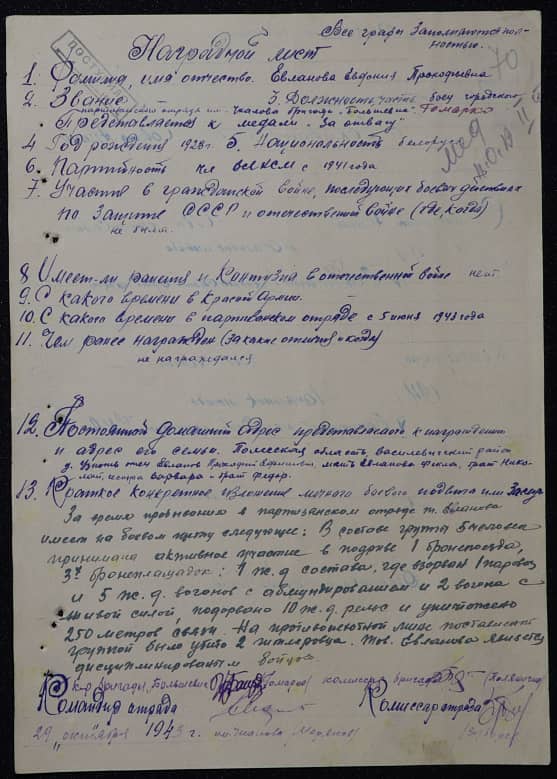 Все графы Заполняются пол-
ностью.
Наградной лист
70
1. Фамилия, имя отчество. Евланова Евдокия Прокофьевна
2. Звание 3. Должность, часть боец городского
партизанского отряда им. Чкалова бригады „Большевик"
Представляется к медали „За отвагу"
4. Год рождения 1928г. 5. Национальность белорус
6. Партийность чл ВЛКСМ с 1941 года
7. Участие в гражданской войне, последующих боевых действиях
по защите СССР и отечественной войне (где, когда)
не была.
8. Имеет-ли ранения и Контузия в отечественной войне нет.
9. С какого времени в Красной Армии.
10. С какого времени в партизанском отряде с 5 июня 1943 года
11. Чем ранее награжден (За какие отличия и когда)
не награждался
12. Постоянный домашний адрес представляемого к награждению
и адрес его семьи. Полесская область Василевичский район
отец Евланов Прокофий мать Евланова Фекла, брат Нико-
лай, сестра Варвара брат Федор.
13. Краткое конкретное изложение личного боевого подвига или Заслуг
За время пребывания в партизанском отряде т. Евланова
имеет на боевом счету следующие: В составе группы 5 человек
принимала активное участие в подрыве 1 бронепоезда,
3х бронеплощадок; 1 ж.д. состава, где взорван 1 паровоз
и 5 ж.д. вагонов с обмундированием и 2 вагона с
живой силой, подорвано 10 ж.д. рельс и уничтожено
250 метров связи. На противопехотной мине поставленной
группой было убито 2 жандарма. Тов. Евланова является
дисциплинированым бойцом.
к-р бригады „Большевик" (Гомарко) комиссар бригады
Командир отряда Комиссар отряда
29 „октября 1943 г. им. Чкалова